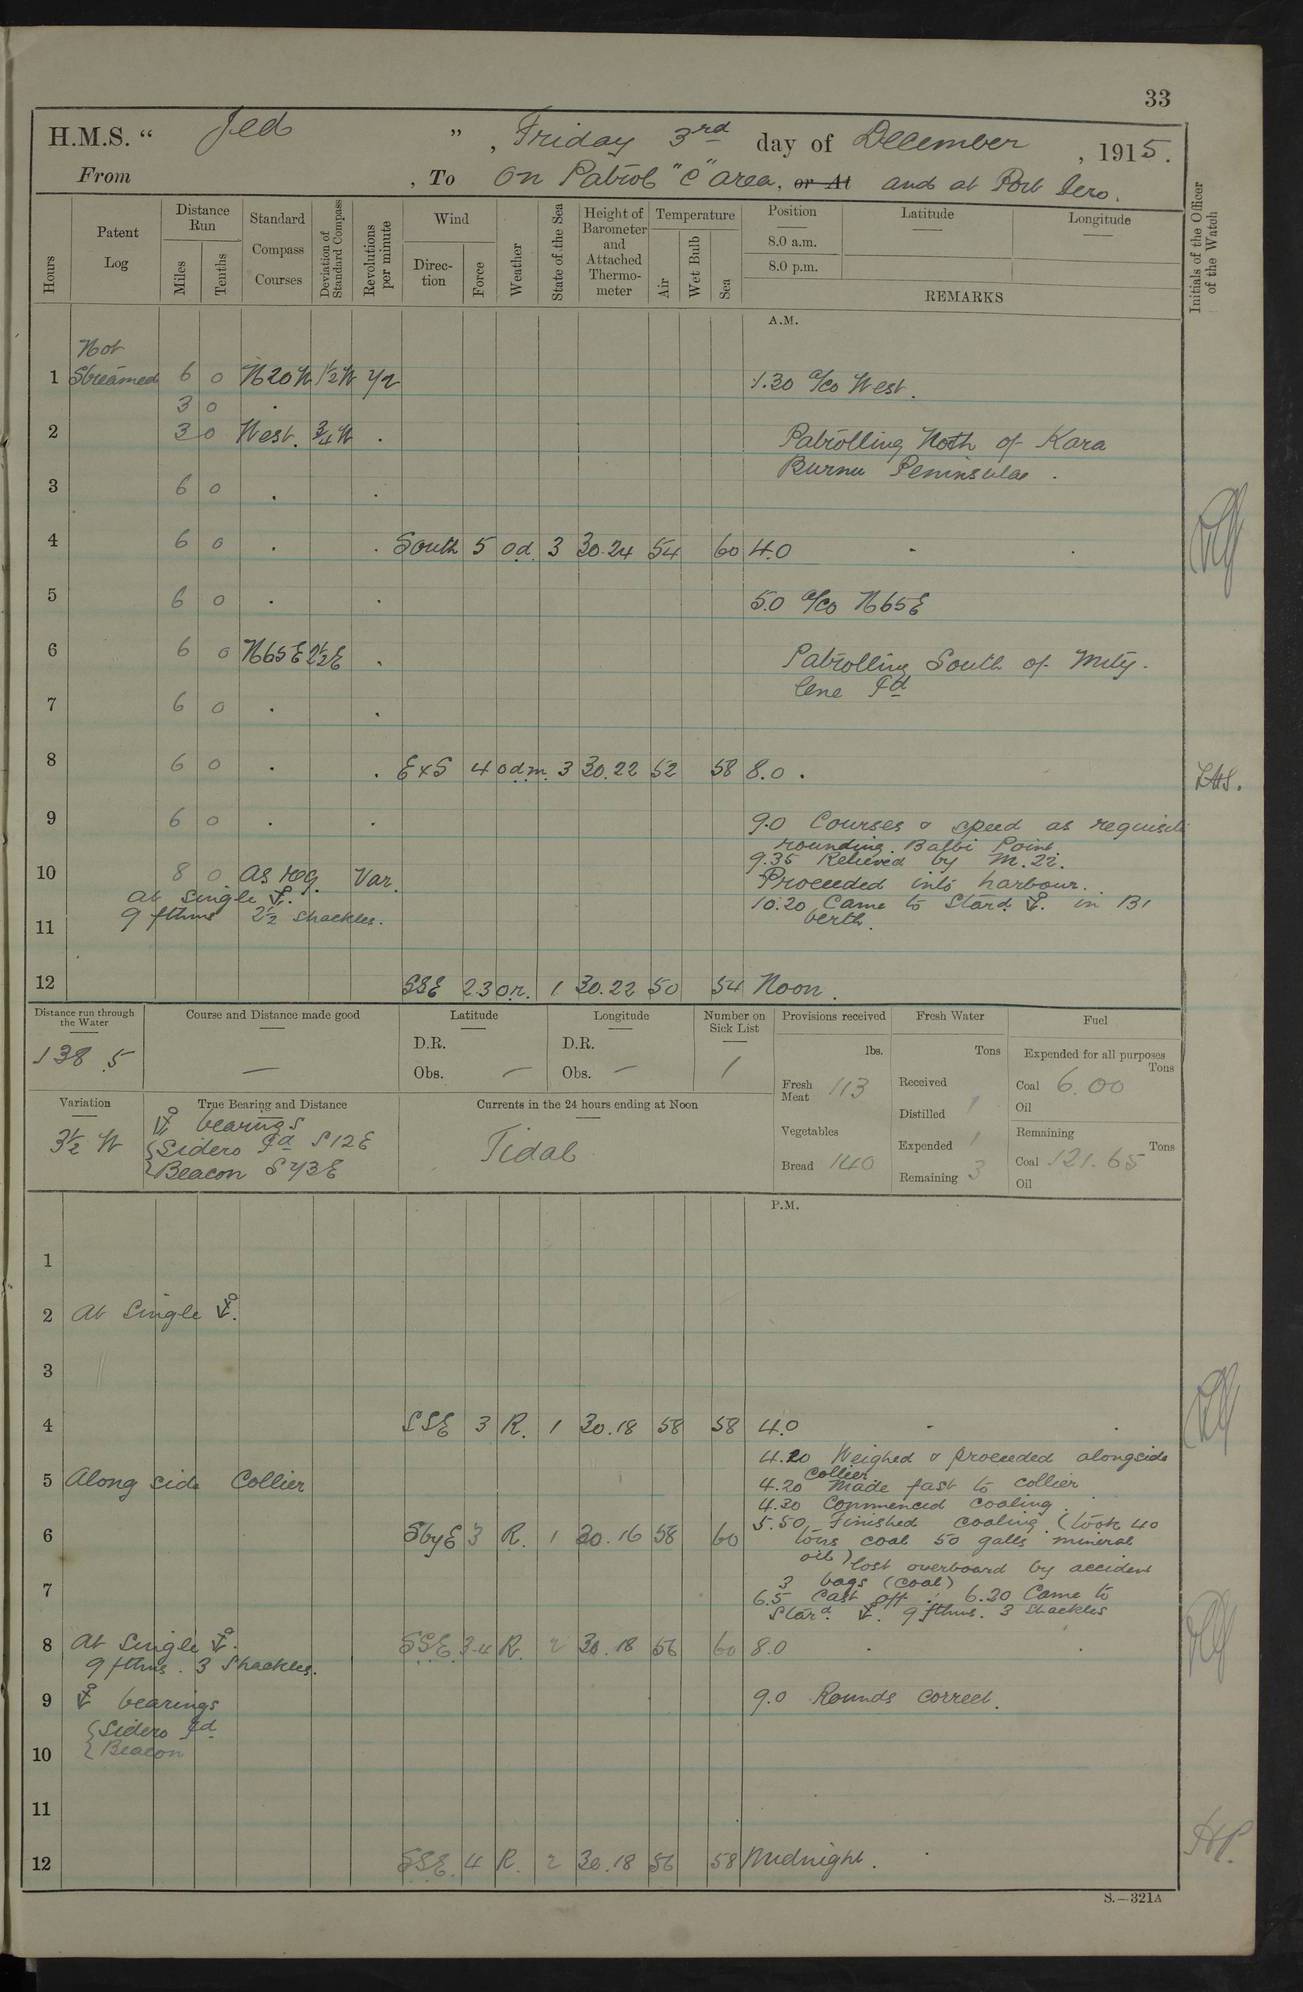 33
H.M.S. “ Jed ”, Friday 3rd day of December, 1915.
From , To On Patrol "C" area, or At and at Port Iero.
Hours
Patent Log
Distance Run
Miles
Tenths
Standard Compass Courses
Deviation of Standard Compass
Revolutions per minute
Wind
Direction
Force
Weather
State of the Sea
Height of Barometer and Attached Thermometer
Temperature
Air
Wet Bulb
Sea
Position
8.0 a.m.
8.0 p.m.
Latitude —
Longitude —
REMARKS
Initials of the Officer of the Watch
A.M.
Not
1 Streamed 6 0 N20W 1½W 72 1.30 a/co West.
3 0 .
2 3 0 West. ¾W . Patrolling Noth of Kara
Burnu Peninsulae .
3 6 0 . .
4 6 0 . . South 5 o.d. 3 30.24 54 60 4.0 . .
5 6 0 . . 5.0 a/co N65E
6 6 0 N65E 2½E . Patrolling South of Mity-
lene Id
7 6 0 . .
8 6 0 . . ExS 4 o.d.m. 3 30.22 52 58 8.0 .
9 6 0 . . 9.0 Courses & speed as requisite
rounding Balbi Point
9.35 Relieved by M.22.
10 8 0 as req. Var. Proceeded into harbour.
at single ⚓. 10.20 Came to Stard. ⚓. in B1
9 fthms 2½ shackles. berth.
11
12 SSE 2.3 o.r. 1 30.22 50 54 Noon.
Distance run through the Water
138.5
Course and Distance made good
—
Latitude
D.R.
Obs. —
Longitude
D.R.
Obs. —
Number on Sick List
1
Provisions received
lbs.
Fresh Meat 113
Vegetables
Bread 140
Fresh Water
Tons
Received
Distilled 1
Expended 1
Remaining 3
Fuel
Expended for all purposes
Tons
Coal 6.00
Oil
Remaining
Tons
Coal 121.65
Oil
Variation
3½ W
True Bearing and Distance
⚓ bearings
{Sidero Id S12E
{Beacon S73E
Currents in the 24 hours ending at Noon
Tidal
P.M.
1
2 At Single ⚓.
3 "
4 SSE 3 R. 1 30.18 58 58 4.0 . .
4.20 Weighed & proceeded alongside
Collier
5 Along side Collier 4.20 Made fast to collier
4.30 Commenced coaling.
5.50 Finished coaling. (took 40
6 SbyE 3 R. 1 30.16 58 60 tons coal 50 galls mineral
oil) lost overboard by accident
7 3 bags (coal)
6.5 Cast off. 6.20 Came to
Stard. ⚓. 9 fthms. 3 shackles
8 At Single ⚓. SSE 3.4 R. 2 30.18 56 60 8.0 . .
9 fthms. 3 Shackles.
9 ⚓ bearings 9.0 Rounds correct.
{Sidero Id
10 {Beacon
11
12 SSE. 4 R. 2 30.18 56 58 Midnight.
S.—321A